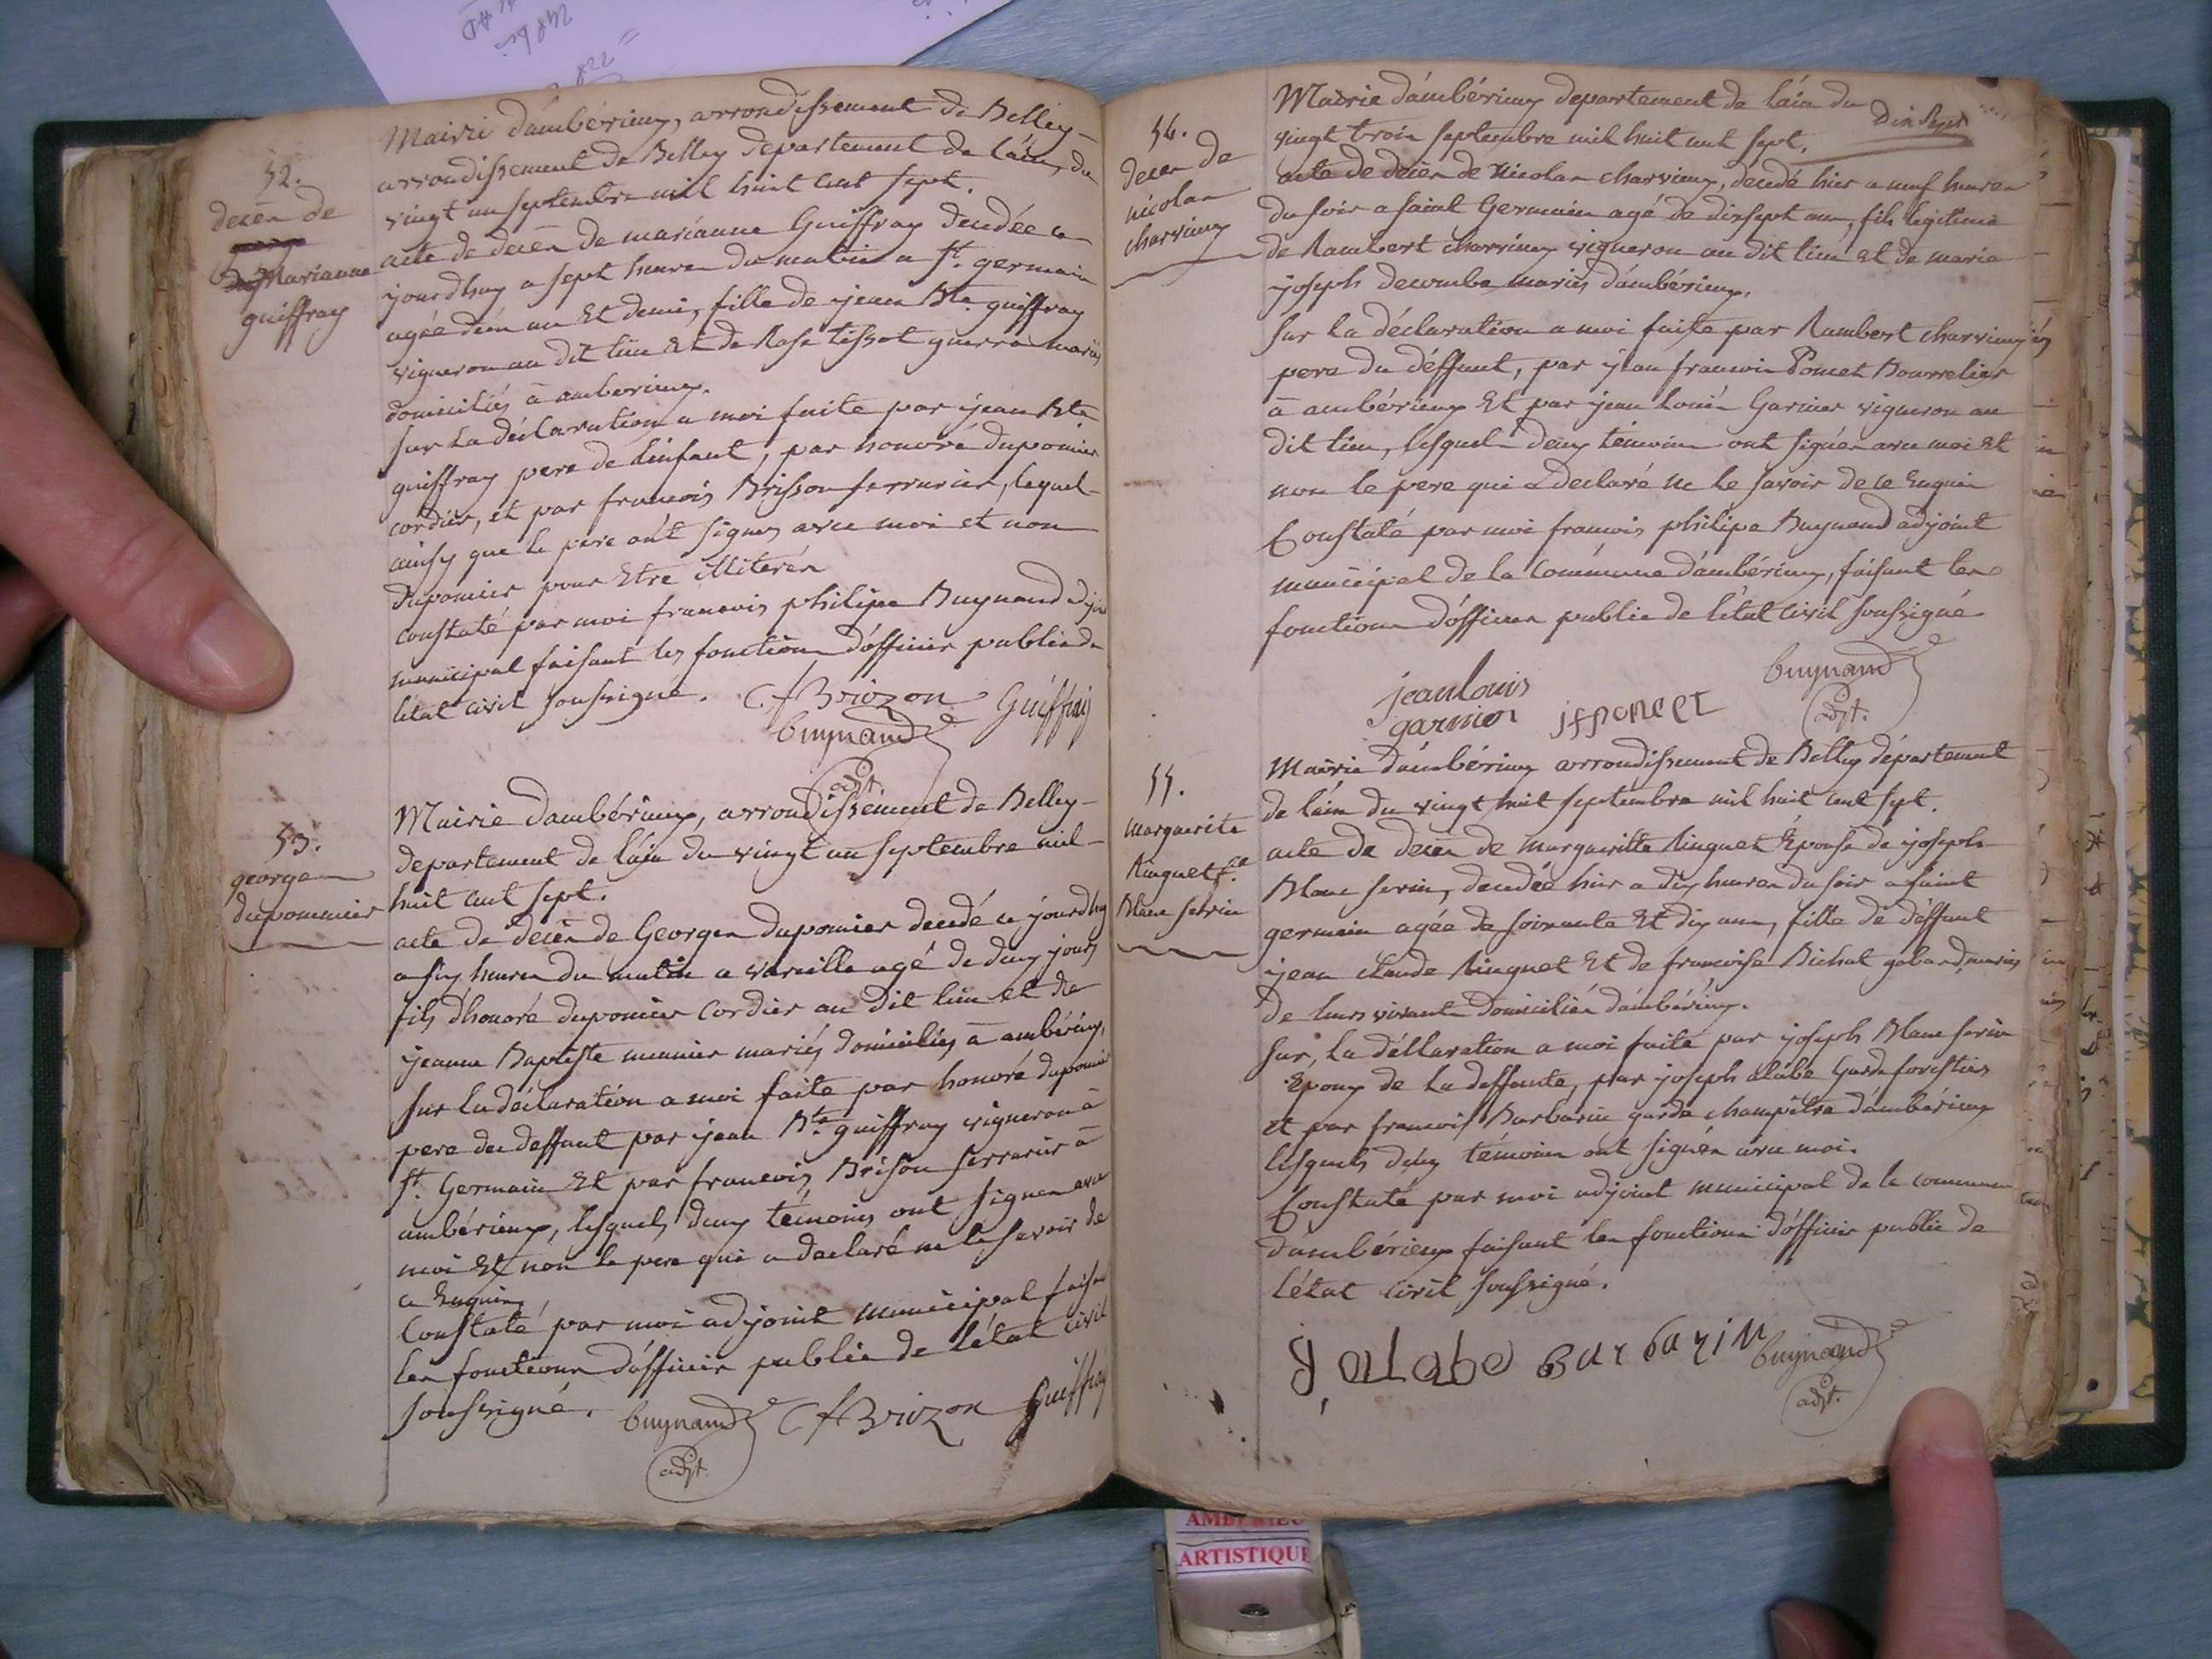 52.
deces de
Marianne
guiffray
Mairie d'ambérieux, arrondissement de Belley
arrondissement de Belley departement de l'ain, du
vingt un septembre mil huit cent sept.
acte de décès de marianne Guiffray decedée ce
jourdhuy a sept heures du matin a St. germain
agée d'un an et demi, fille de jean Bte. guiffray
vigneron au dit lieu et de Rose tissot guerra mariés
domiciliés à amberieux.
sur la déclaration a moi faite par jean Bte
guiffray pere de l'enfant, par honoré dupomier
cordier, et par francois Brisson serrurier, lequel
ainsy que le père ont signes avec moi et non
dupomier pour etre illiterés
constaté par moi francois philipe Buynand adjoint
municipal faisant les fonctions d'officier public de
l'état civil soussigné. Brizon Guiffray
buynand
adjt.
53.
georges
dupommier
Mairie d'ambérieux, arrondissement de Belley
departement de l'ain du vingt un septembre mil
huit cent sept.
acte de décès de Georges dupomier decedé ce jourdhuy
a six heures du matin a vareille agé de deux jours
fils d'honoré dupomier cordier au dit lieu et de
jeanne Baptiste meunier mariés domiciliés à ambérieux,
sur la déclaration a moi faite par honoré dupomier
pere du deffunt par jean Bte. guiffray vigneron à
St. Germain et par francois Brison serrurier à
ambérieux, lesquels deux témoins ont signes avec
moi et non le pere qui a declaré ne le savoir de
ce Enquis,
Constaté par moi adjoint municipal faisant
les fonctions d'officier public de l'état civil
soussigné. buynand Brizon Guiffray
adjt.
54.
deces de
nicolas
charvieux
Mairie d'ambérieux departement de l'ain du
vingt trois septembre mil huit cent sept.
acte de deces de Nicolas charvieux, decedé hier a neuf heures
du soir a saint Germain agé de dixsept ans, fils legitime
de Rambert charvieux vigneron au dit lieu et de marie
joseph decombe mariés d'ambérieux.
sur la déclaration a moi faite par Rambert charvieux
pere du déffunt, par jean francois Poncet Bourrelier
à ambérieux et par jean Louis Garnier vigneron au
dit lieu, lesquels deux témoins ont signés avec moi et
non le pere qui a declaré ne le savoir de ce Enquis
Constaté par moi francois philipe Buynand adjoint
municipal de la Commune d'ambérieux, faisant les
fonctions d'officier public de l'état civil soussigné
buynand
jean louis
garnier jfponcet
adjt.
55.
marguerite
Ringuet fe.
Blanc serin
Mairie d'ambérieux arrondissement de Belley département
de l'ain du vingt huit septembre mil huit cent sept.
acte de deces de marguerite Ringuet Épouse de joseph
Blanc serin, decedée hier a dix heures du soir a saint
germain agée de soixante et dix ans, fille de déffunt
jean claude Ringuet et de francoise Bichat galand, mariés
de leurs vivants domiciliés d'ambérieux.
sur, la déclaration a moi faite par joseph Blanc serin
Époux de la deffunte, par joseph alabe Garde forestier
et par francois Barbarin garde champêtre d'ambérieux
lesquels deux témoins ont signés avec moi.
Constaté par moi adjoint municipal de la commune
d'ambérieux faisant les fonctions d'officier public de
l'état civil soussigné.
j, alabe Barbarin buynand
adjt.
ARTISTIQUE